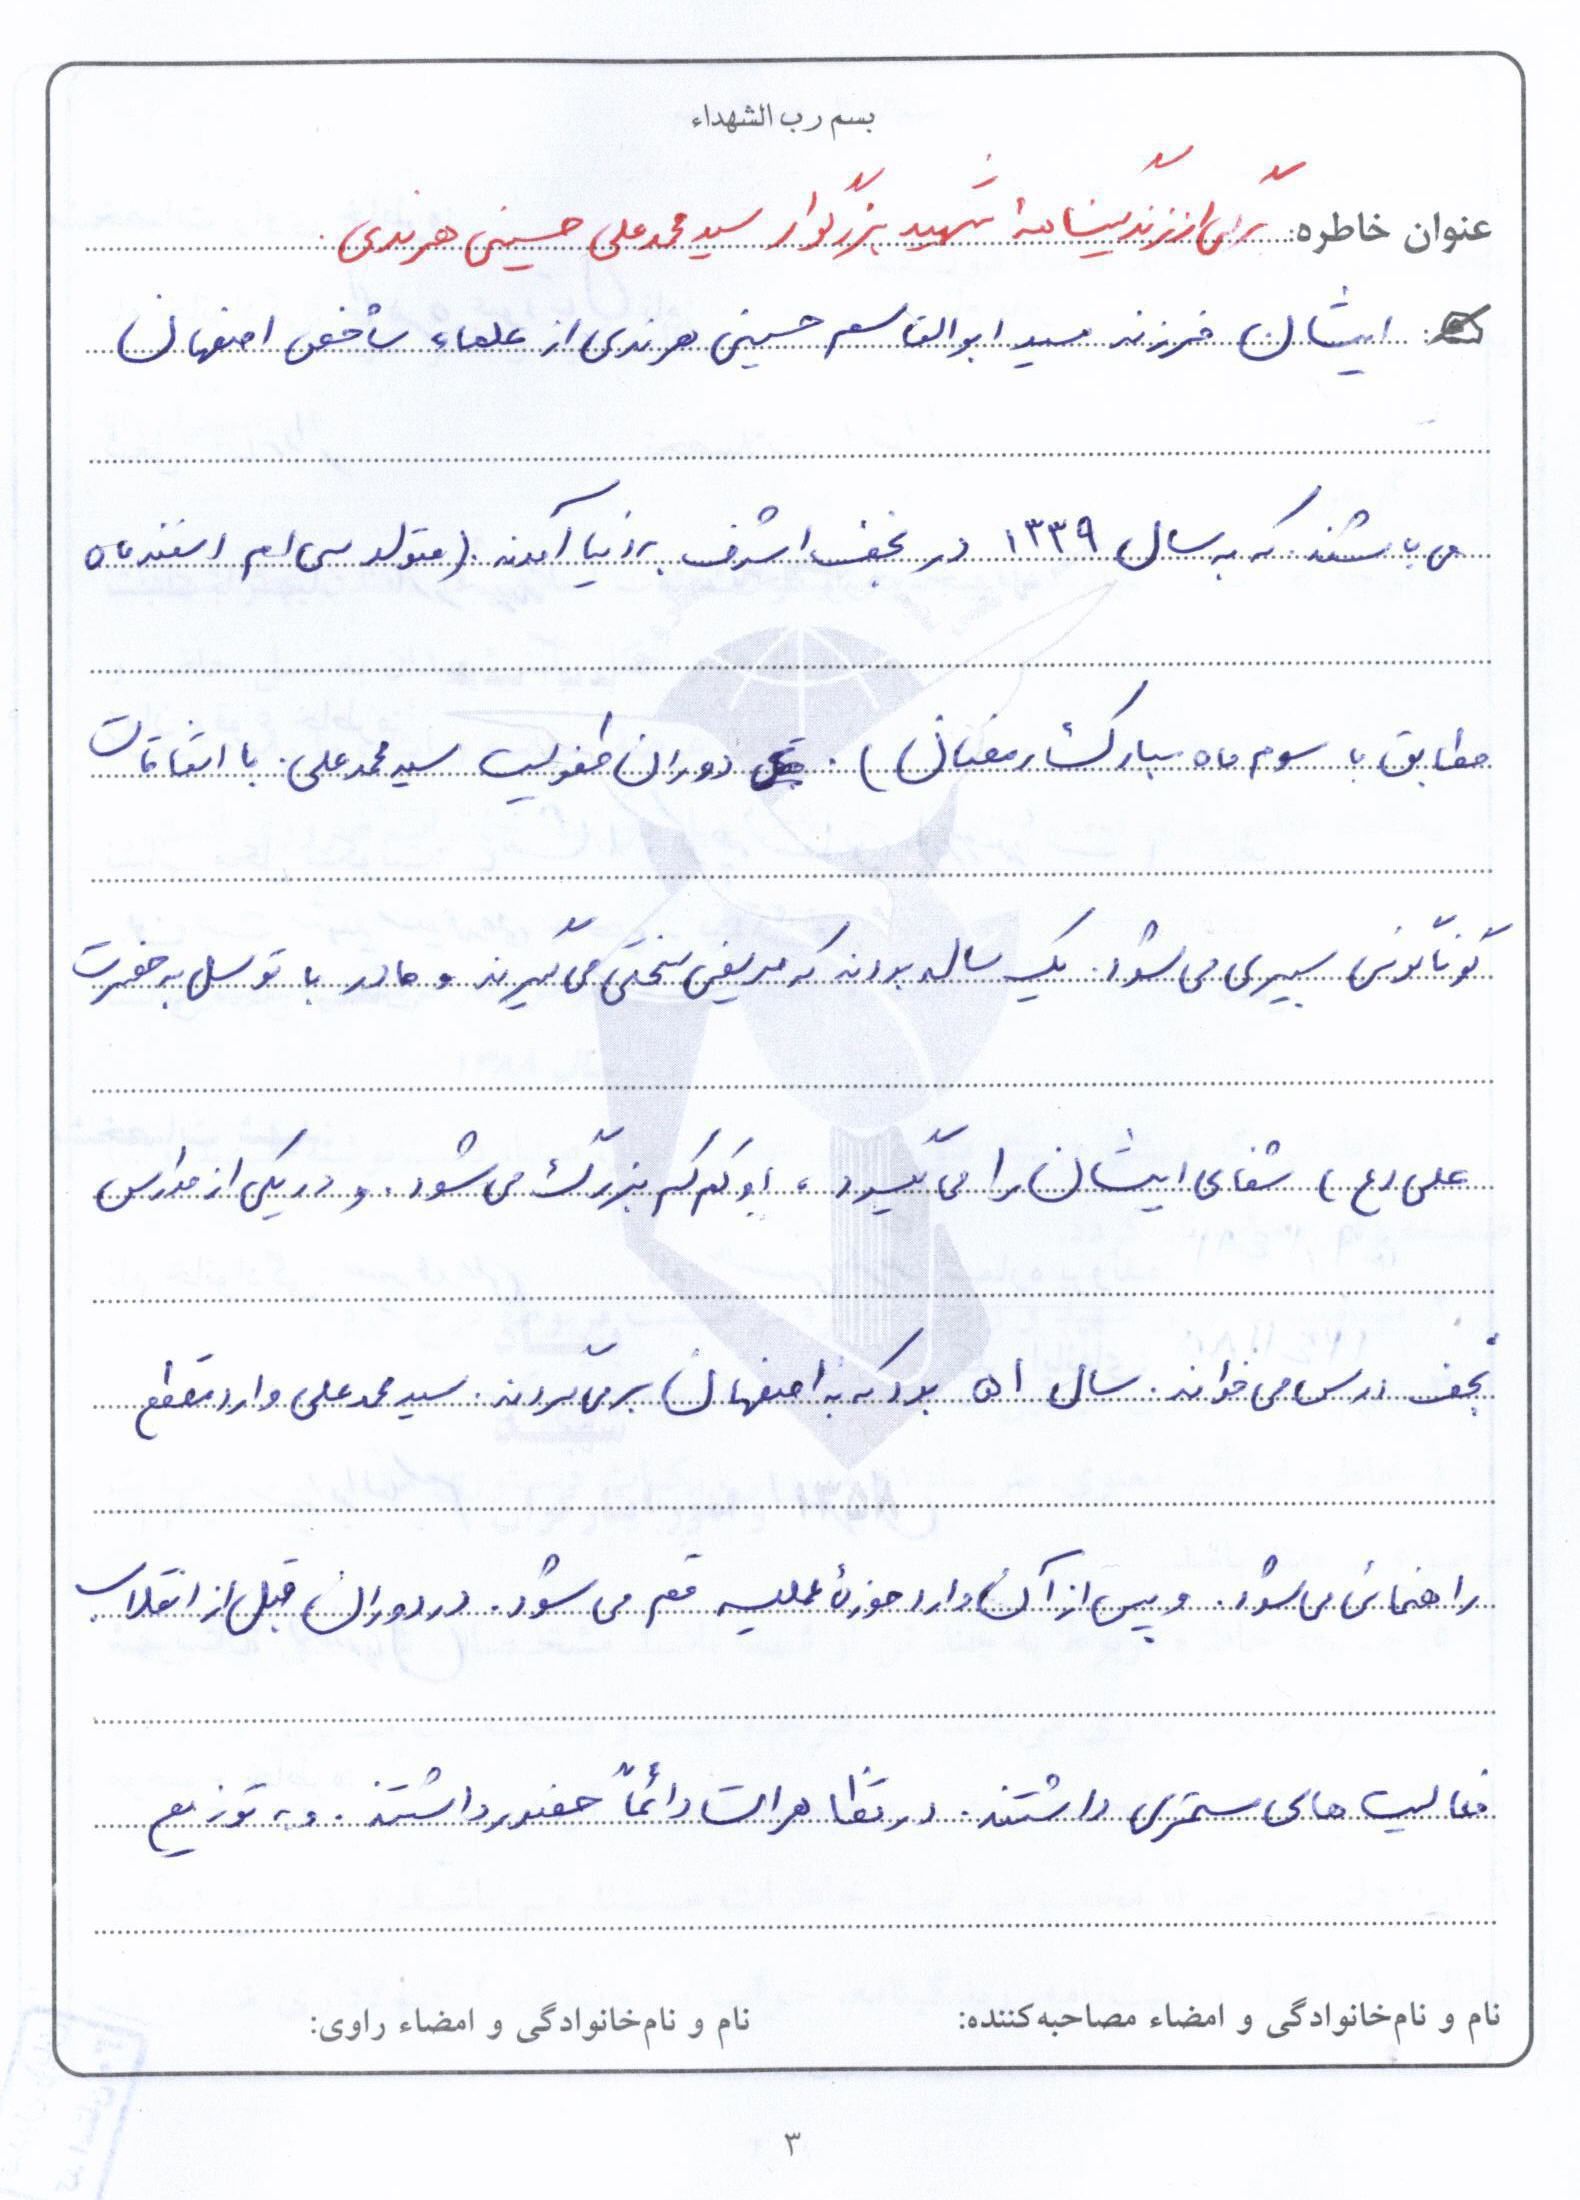 بسم رب الشهداء
عنوان خاطره: برگی از زندگینامهٔ شهید بزرگوار سید محمد علی حسینی هرندی.
ایشان فرزند سید ابوالقاسم حسینی هرندی از علماء شاخص اصفهان
می باشند. که به سال ۱۳۳۹ در نجف اشرف به دنیا آمدند. (متولد سی ام اسفند ماه
مطابق با سوم ماه مبارک رمضان). دوران طفولیت سید محمد علی. با اتفاقات
گوناگونی سپری می شود. یک ساله بودند که مریضی سختی می گیرند و مادر با توسل به حضرت
علی (ع) شفای ایشان را می گیرد، او کم کم بزرگ می شود. و در یکی از مدارس
نجف درس می خواند. سال ۵۱ بود که به اصفهان برمی گردند. سید محمد علی وارد مقطع
راهنمائی می شود. و پس از آن وارد حوزهٔ علمیه قم می شود. در دوران قبل از انقلاب
فعالیت های مستمری داشتند. در تظاهرات دائماً حضور داشتند. و به توزیع
نام و نام‌خانوادگی و امضاء مصاحبه‌کننده: نام و نام‌خانوادگی و امضاء راوی:
۳